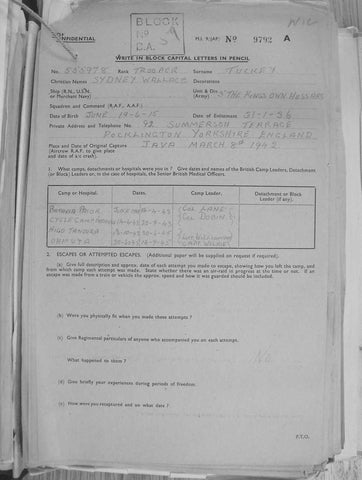 TOP
CONFIDENTIAL
BLOCK
No
C.A.
M.I. 9/JAP/ No 9792 A
WRITE IN BLOCK CAPITAL LETTERS IN PENCIL
No. 555978 Rank TROOPER Surname TUCKEY
Christian Names SYDNEY WALLACE
Ship (R.N., U.S.N. or Merchant Navy)
Unit & Div. (Army) 3 THE KINGS OWN HUSSARS
Squadron and Command (R.A.F., A.A.F.)
Date of Birth JUNE 19-6-15 Date of Enlistment 31-1-36
Private Address and Telephone No. 92 SUMMERSON TERRACE
POCKLINGTON YORKSHIRE ENGLAND
Place and Date of Original Capture JAVA MARCH 8th 1942
(Aircrew R.A.F. to give place and date of a/c crash).
1. What camps, detachments or hospitals were you in ? Give dates and names of the British Camp Leaders, Detachment (or Block) Leaders or, in the case of hospitals, the Senior British Medical Officers.
Camp or Hospital. Dates. Camp Leader. Detachment or Block Leader (if any).
COL LANE
CYCLE CAMP COL
2. ESCAPES OR ATTEMPTED ESCAPES. (Additional paper will be supplied on request if required).
(a) Give full description and approx. date of each attempt you made to escape, showing how you left the camp, and from which camp each attempt was made. State whether there was an air-raid in progress at the time or not. If an escape was made from a train or vehicle the approx. speed and how it was guarded should be included.
(b) Were you physically fit when you made these attempts ?
(c) Give Regimental particulars of anyone who accompanied you on each attempt.
What happened to them ? NO
(d) Give briefly your experiences during periods of freedom.
(e) How were you recaptured and on what date ?
P.T.O.